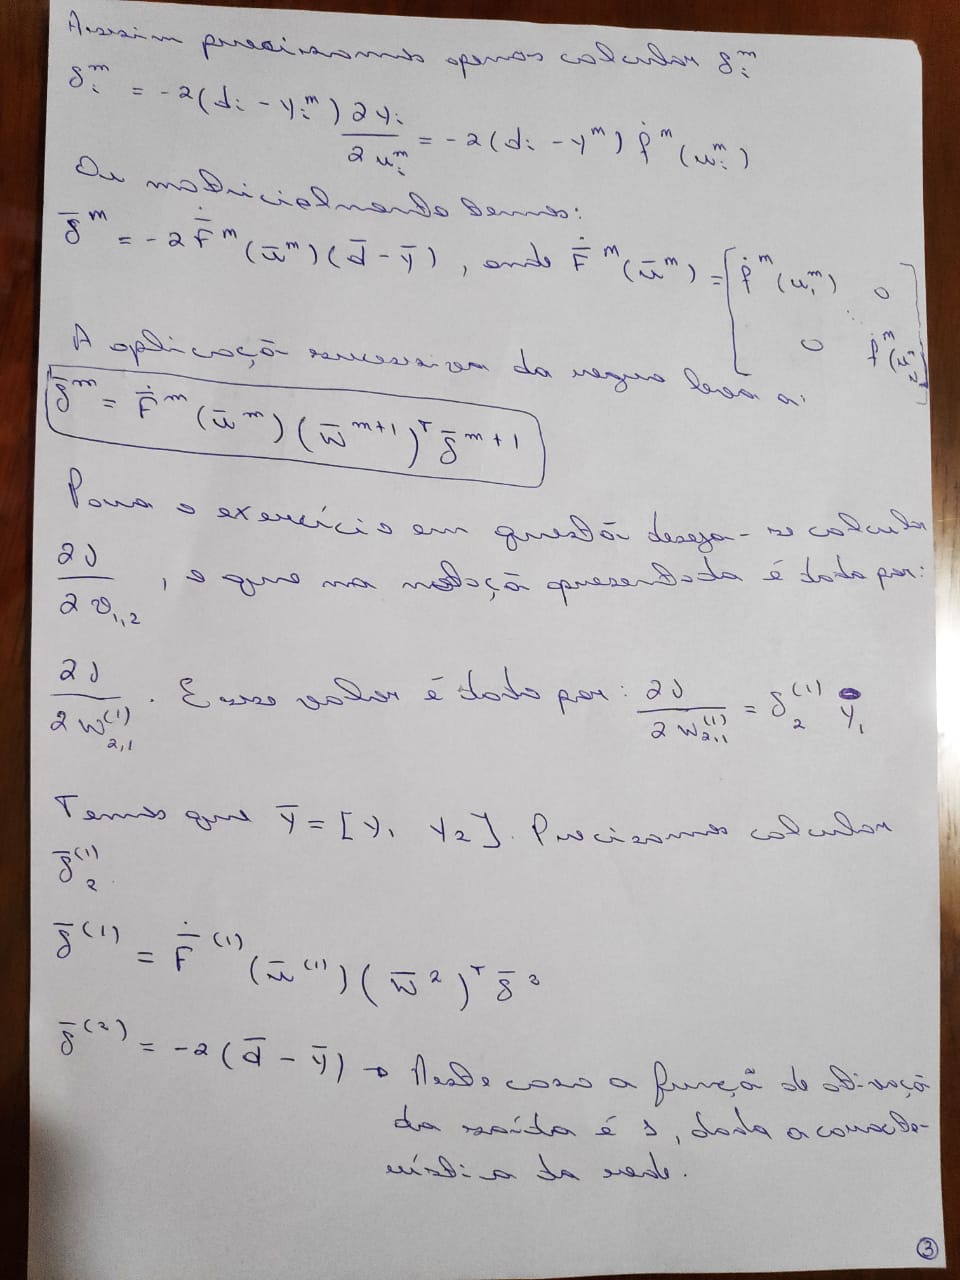 Assim precisamos apenas calcular δᵢᵐ
δᵢᵐ = -2(dᵢ - yᵢᵐ) ∂yᵢ/∂uᵢᵐ = -2(dᵢ - yᵐ) ḟᵐ(uᵢᵐ)
Ou matricialmente temos:
δ̄ᵐ = -2 Ḟ̄ᵐ(ūᵐ)(d̄ - ȳ), onde Ḟ̄ᵐ(ūᵐ) = [ḟᵐ(u₁ᵐ) 0
0 ḟᵐ(u₂ᵐ)]
A aplicação sucessiva da regra leva a:
δ̄ᵐ = Ḟ̄ᵐ(ūᵐ)(w̄ᵐ⁺¹)ᵀ δ̄ᵐ⁺¹
Para o exercício em questão deseja-se calcular
∂J/∂v₁,₂, o que na notação apresentada é dado por:
∂J/∂w₂,₁⁽¹⁾. Esse valor é dado por: ∂J/∂w₂,₁⁽¹⁾ = δ₂⁽¹⁾ y₁
Temos que ȳ = [y₁ y₂]. Precisamos calcular
δ̄₂⁽¹⁾.
δ̄⁽¹⁾ = Ḟ̄⁽¹⁾(ū⁽¹⁾)(w̄²)ᵀ δ̄²
δ̄⁽²⁾ = -2(d̄ - ȳ) → Neste caso a função de ativação
da saída é 1, dada a caracte-
rística da rede.
3